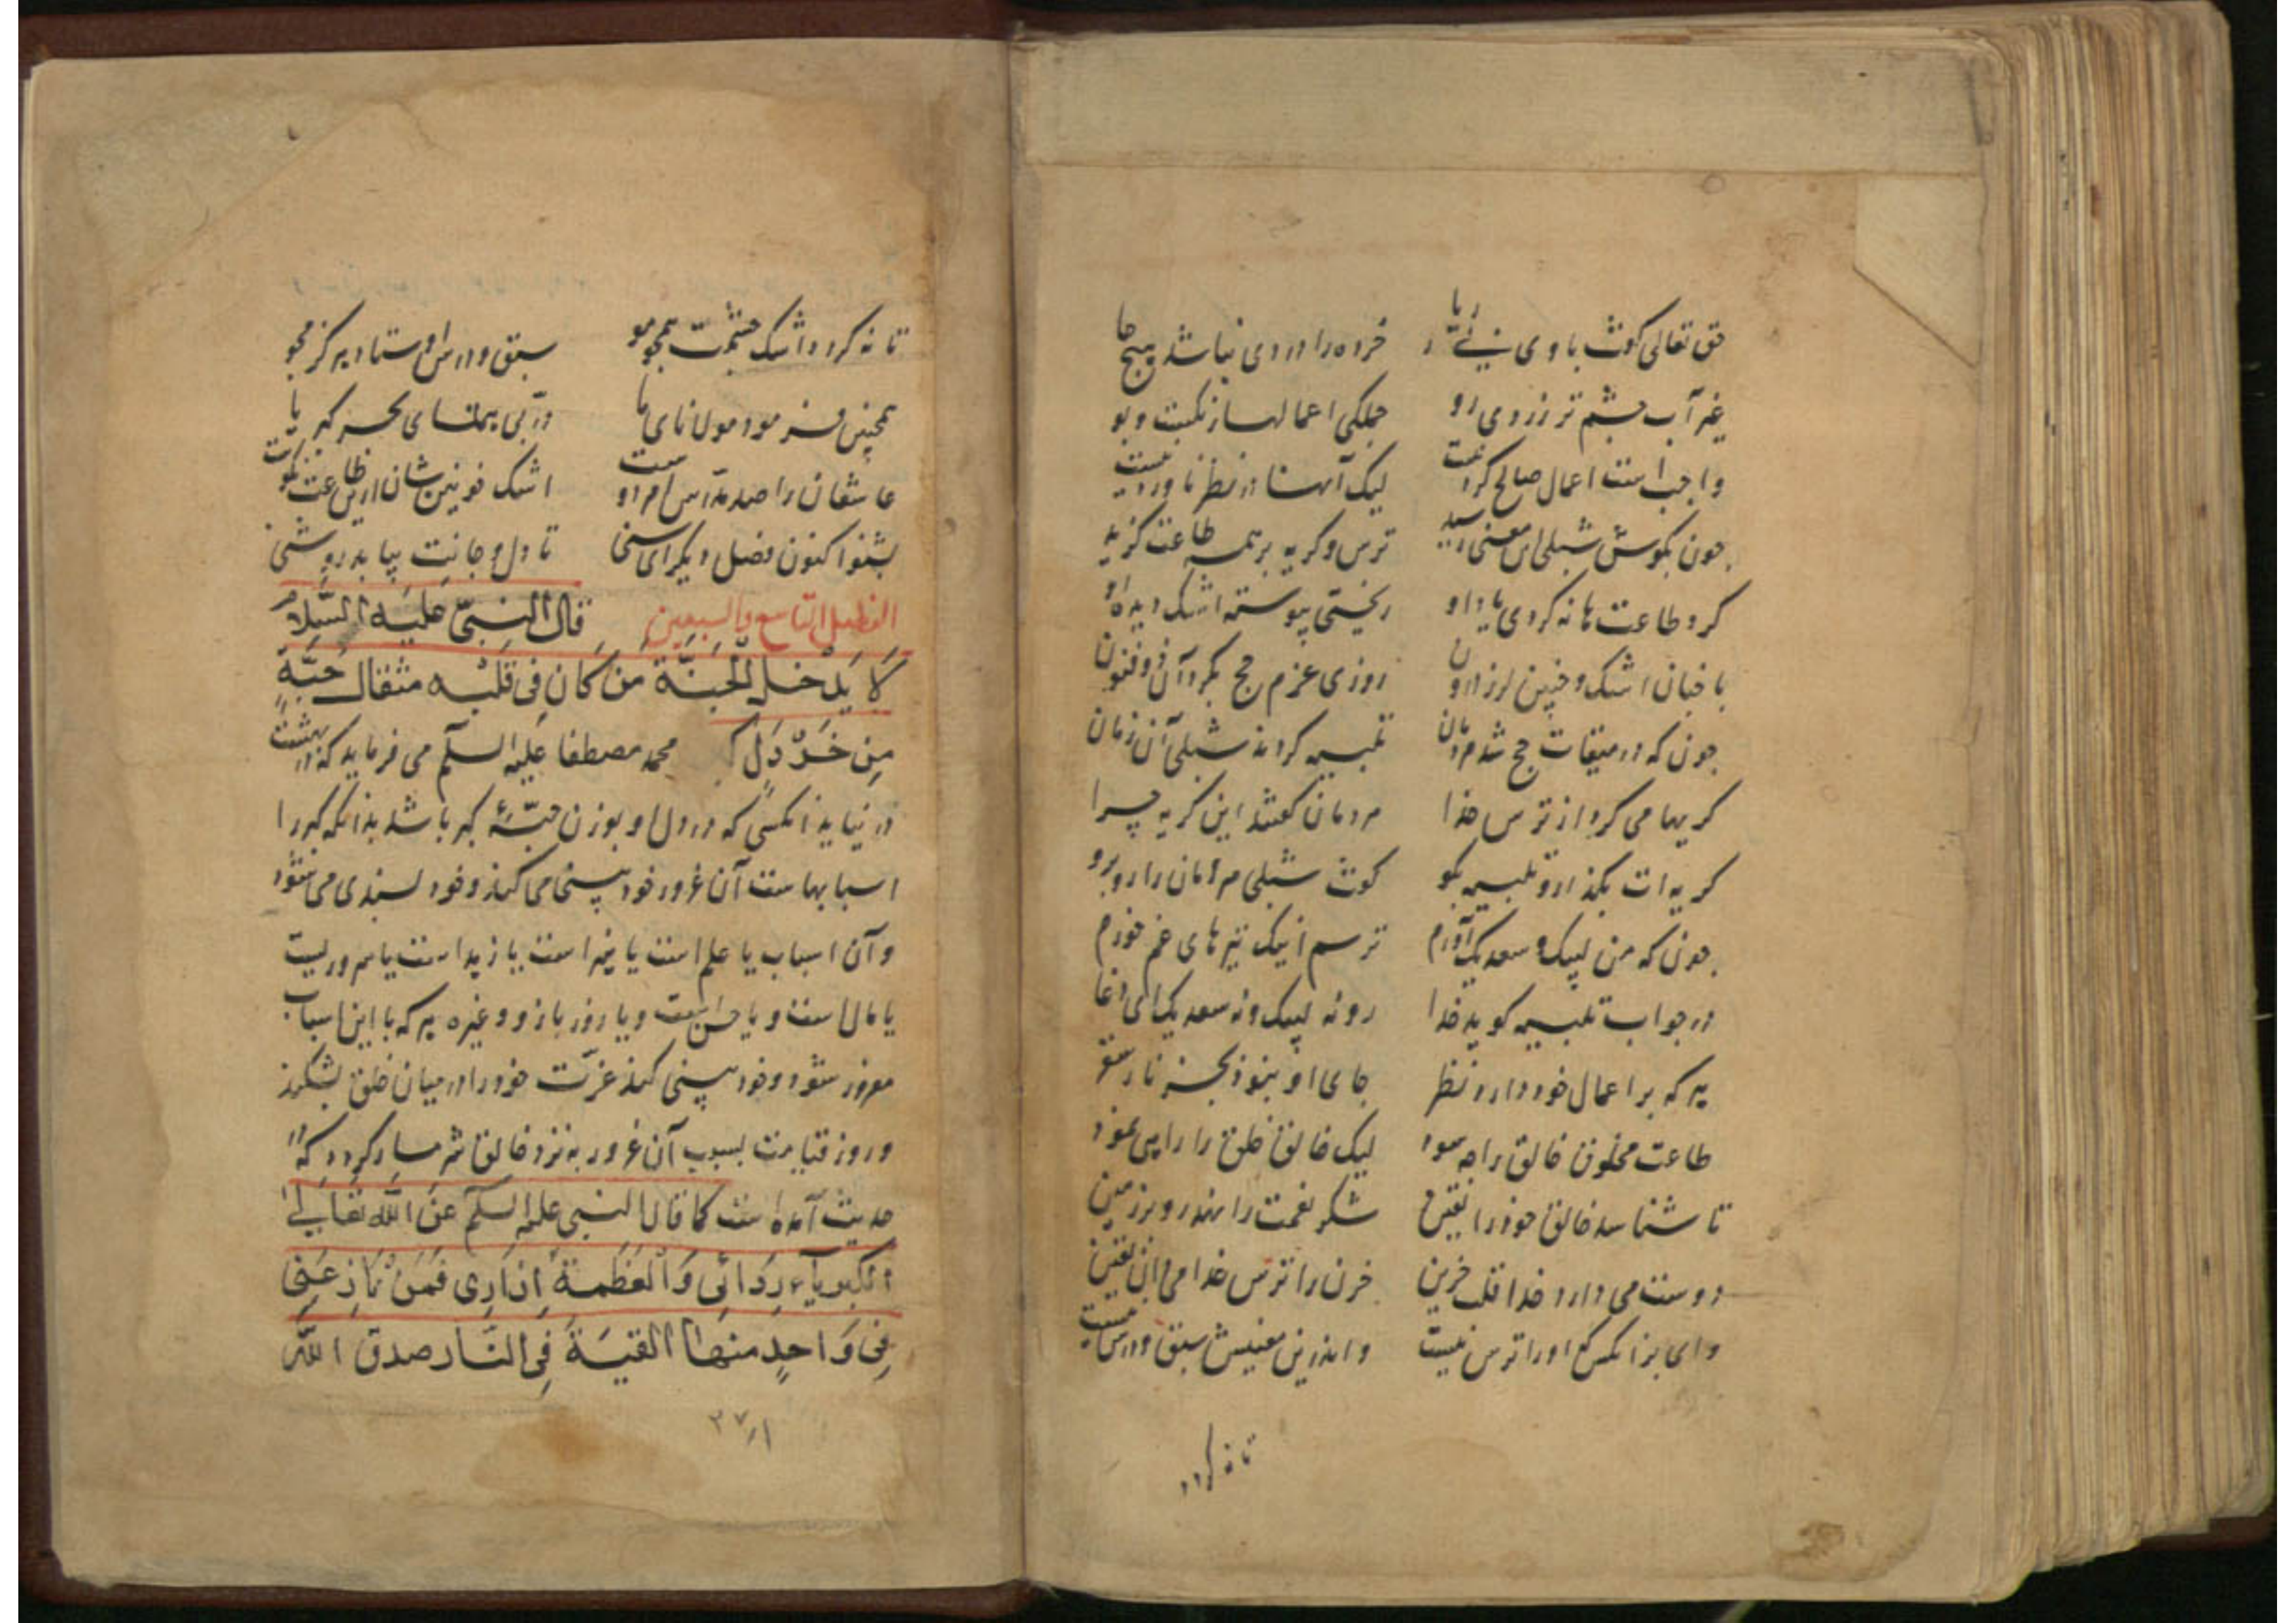 حق تعالی کوش با وی نی ریا خرده را در وی نباشد هیچ جا
غیر آب چشم تر زردی رو جملکی اعمالها ز نکبت و بو
واجب است اعمال صالح کردنت لیک آنها در نظر ناوردنیست
چون بکوش شبلی این معنی رسید ترس و کریه بر همه طاعت کزید
کرد طاعت ها نه کردی یاد او ریختی پیوسته اشک دیده او
با جنان اشک و چنین لرز درون روزی عزم حج بکرد آن ذو فنون
چون که در میقات حج شد مردمان تلبیه کردند شبلی آن زمان
کریها می کرد از ترس خدا مردمان کفتند این کریه چرا
کریه ات بکذار و تلبیه بکو کفت شبلی مردمان را روبرو
چون که من لبیک و سعدیک آورم ترسم انیک تیرهای غم خورم
در جواب تلبیه کوید خدا رو نه لبیک و نه سعدیک ای دغا
هر که بر اعمال خود دارد نظر جای او نبود بجز نار سقر
طاعت مخلوق خالق را چه سود لیک خالق خلق را راهی نمود
تا شناسد خالق خود را یقین شکر نعمت را نهد رو بر زمین
دوست می دارد خدا قلب حزین حزن را ترس خدا می دان یقین
وای بر آنکس که او را ترس نیست واندرین معنیش سبق و درس نیست
تا نه کردد
تا نه کردد اشک چشمت همچو مو سبق و درس اوستاد هرکز مجو
همچنین فرمود مولانای ما در پی همتای بحر کبریا
عاشقان را صد مدارس مردو اشک خونین شان ازین طاعت نکوست
بشنو اکنون فصل دیکر ای سخی تا دل و جانت بیابد روشنی
الفصل التاسع والسبعین قال النبی علیه السلام
لا یدخل الجنة من کان فی قلبه مثقال حبة
من خردل محمد مصطفا علیه السلم می فرماید که در بهشت
در نیاید آنکسی که در دل او بوزن حبّهٔ کبر باشد بدانکه کبر را
اسبابهاست آن غرور خود بینی می کند و خود پسندی می شود
و آن اسباب یا علم است یا خیر است یا زهد است یا سروریست
یا مال است و یا حسن است و یا زور بازو و غیره هر که با این اسباب
مغرور شود و خود بینی کند عزّت خود را در میان خلق بشکند
و روز قیامت بسبب آن غرور به نزد خالق شرمسار کردد که در
حدیث آمده است کما قال النبی علیه السلم عن الله تعالی
الکبریاء ردائی والعظمة ازاری فمن نازعنی
فی واحد منها القیته فی النار صدق الله